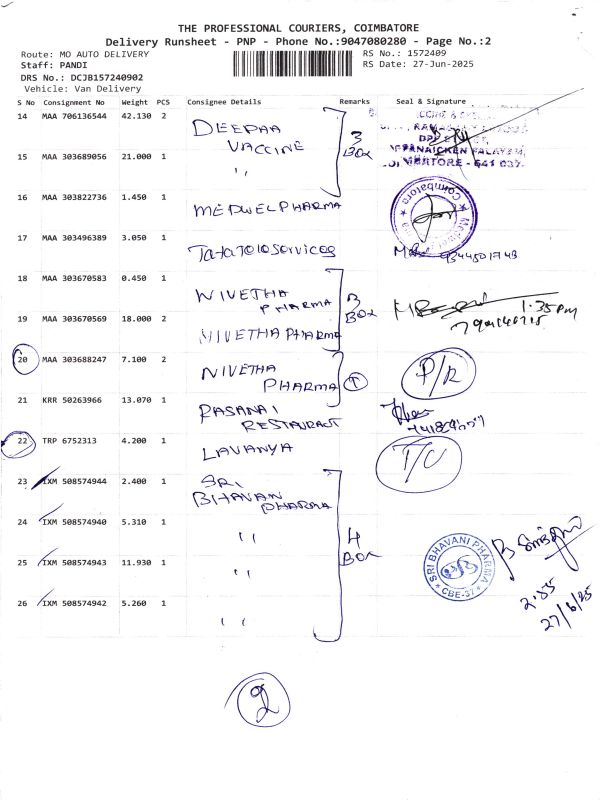 THE PROFESSIONAL COURIERS, COIMBATORE
Delivery Runsheet - PNP - Phone No.:9047080280 - Page No.:2
Route: MO AUTO DELIVERY
RS No.: 1572409
Staff: PANDI
RS Date: 27-Jun-2025
DRS No.: DCJB157240902
Vehicle: Van Delivery
S No Consignment No Weight PCS Consignee Details Remarks Seal & Signature
14 MAA 706136544 42.130 2 DEEPAA VACCINE
3 BOX
15 MAA 303689056 21.000 1 ''
COIMBATORE - 641 037.
16 MAA 303822736 1.450 1 MEDWELPHARMA
Coimbatore
17 MAA 303496389 3.050 1 Tatateleservices
18 MAA 303670583 0.450 1 NIVETHA PHARMA
3 BOX
1:35pm
19 MAA 303670569 18.000 2 NIVETHA PHARMA
20 MAA 303688247 7.100 2 NIVETHA PHARMA
P/R
21 KRR 50263966 13.070 1 RASANAI RESTAURACT
22 TRP 6752313 4.200 1 LAVANYA
T/C
23 IXM 508574944 2.400 1 SRI BHAVAN PHARMA
24 IXM 508574940 5.310 1 ''
4 BOX
25 IXM 508574943 11.930 1 ''
SRI BHAVANI PHARMA
CBE-37
26 IXM 508574942 5.260 1 ''
2:55
27/6/25
2